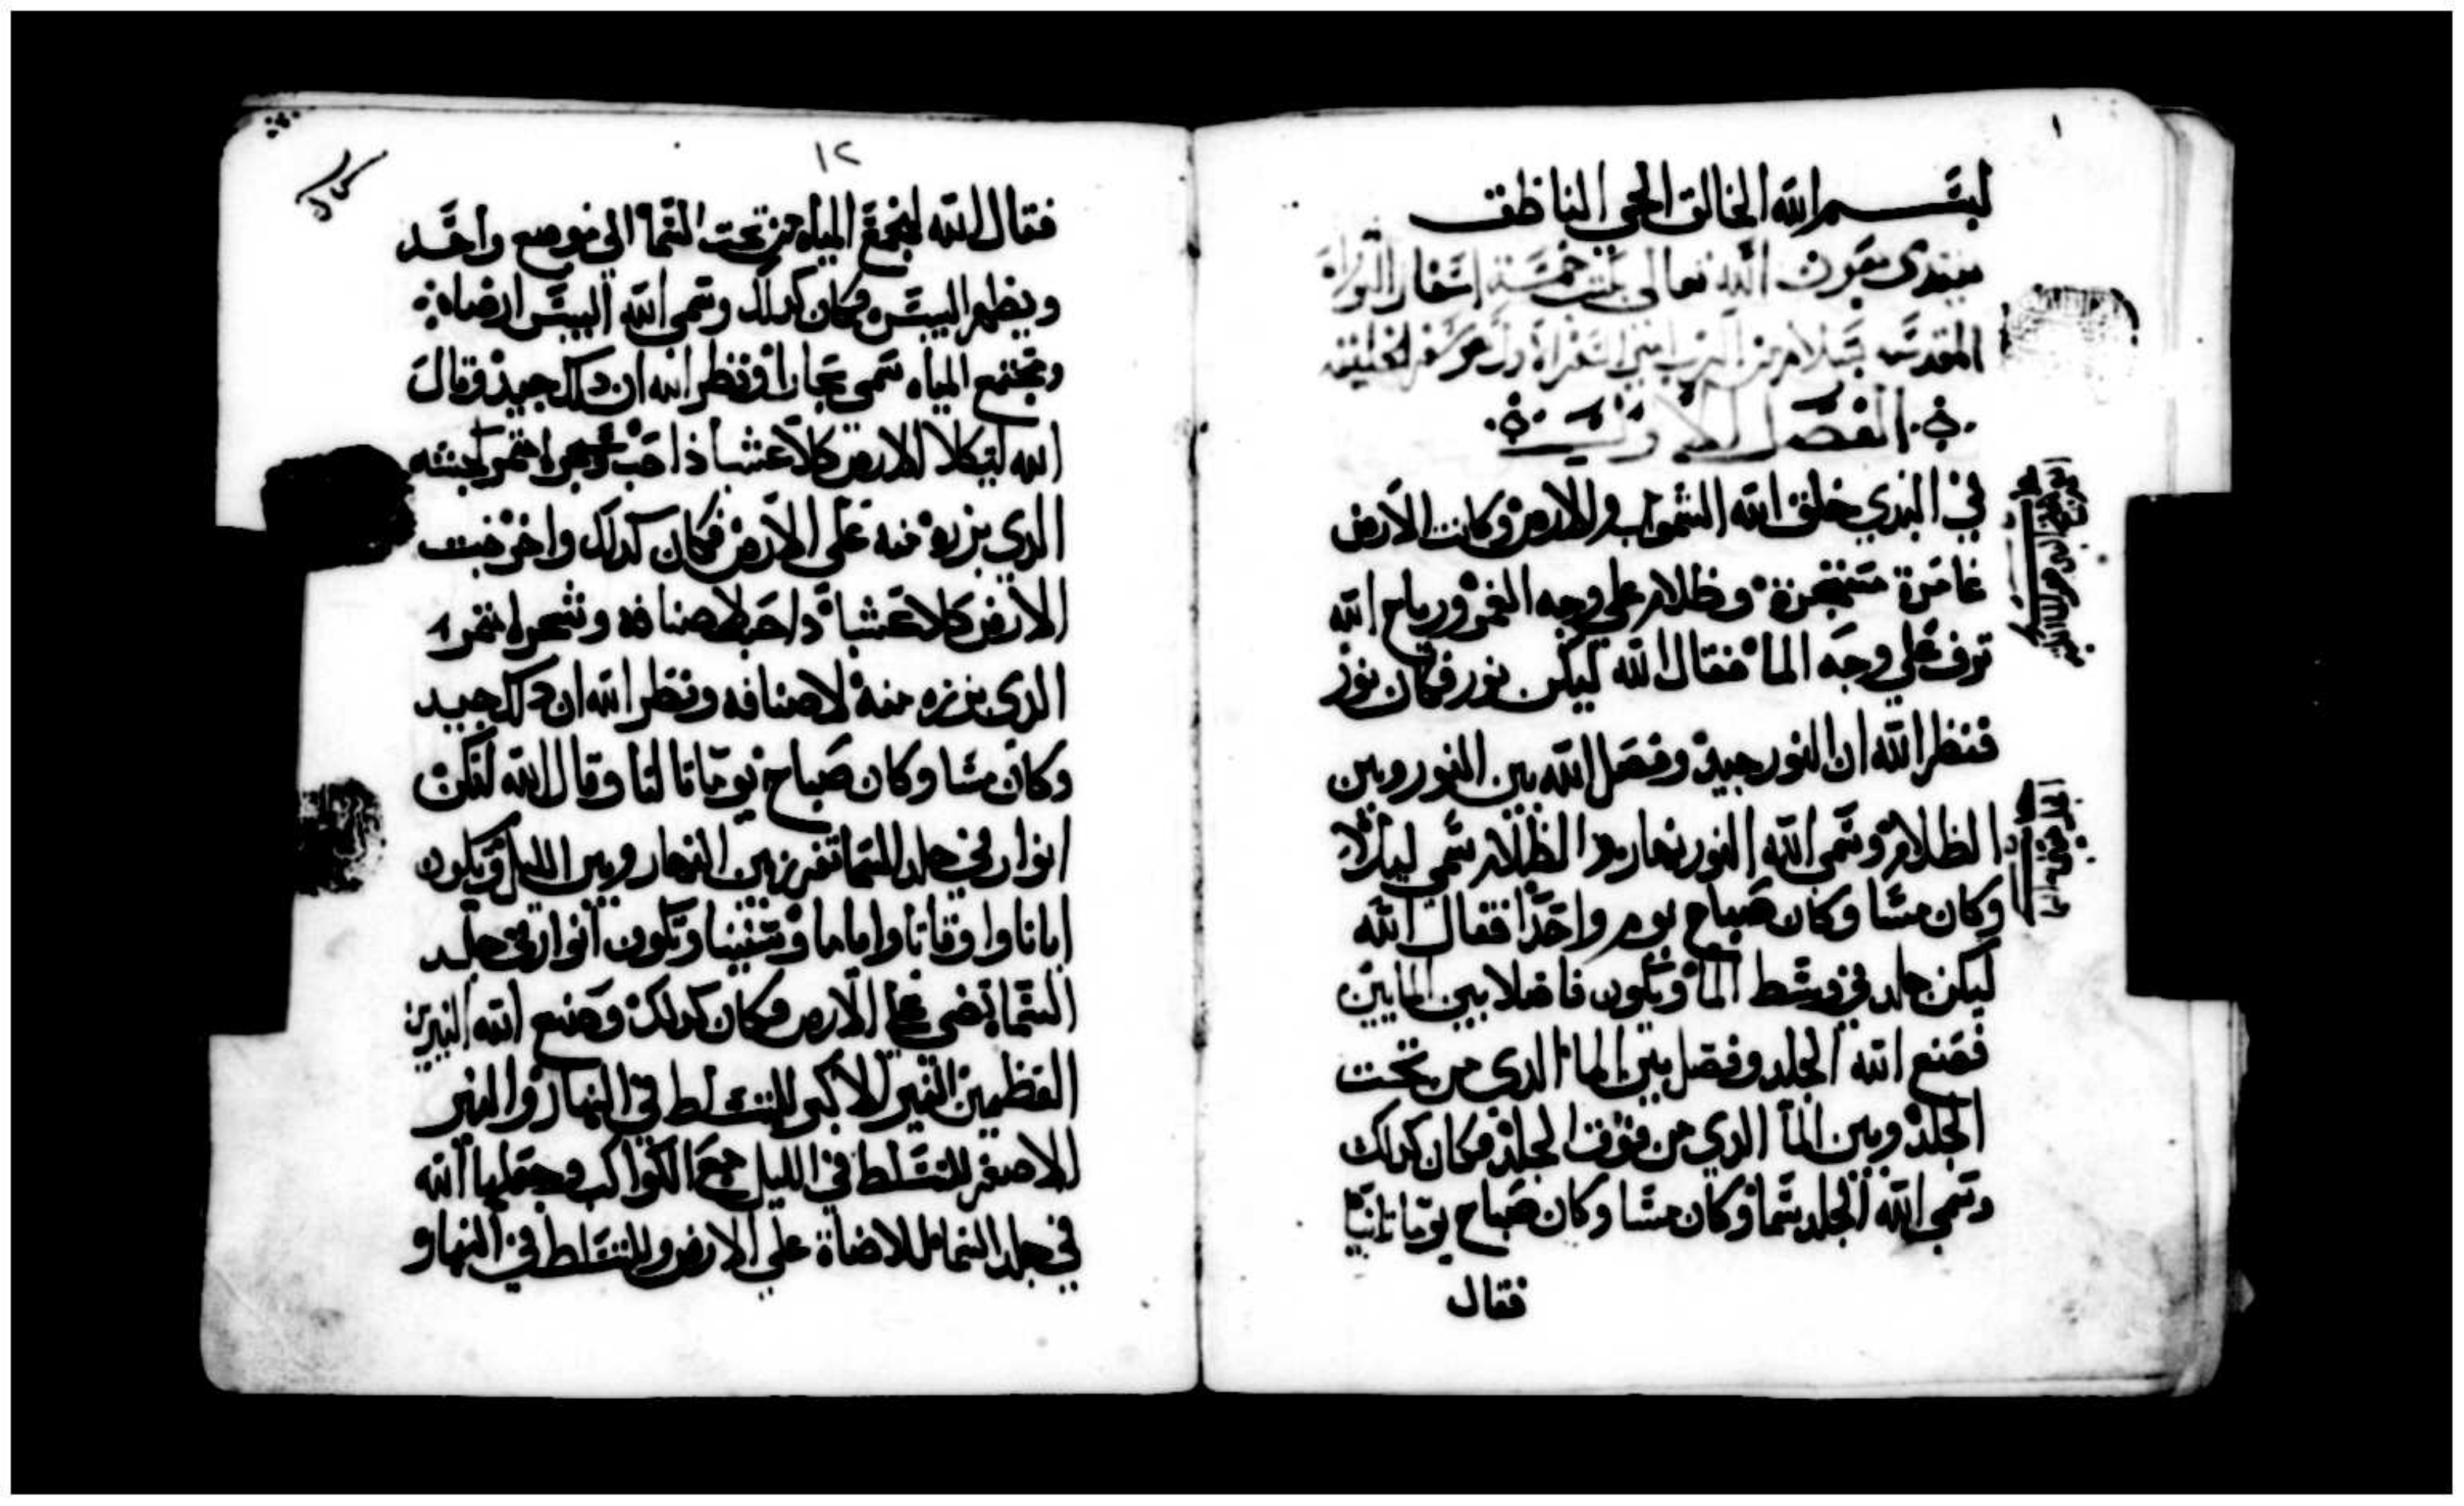 ١
بسم الله الخالق الحي الناطق
نبتدي بعون الله تعالى بكتب خمسة اسفار التوراة
المقدسه بسلام من الرب
الفصل الاول
في البدي خلق الله السموات والارض وكانت الارض
غامرة مستبحرة وظلام على وجه الغمر ورياح الله
ترف علي وجه الما فقال الله ليكن نور فكان نور
فنظر الله ان النور جيد وفصل الله بين النور وبين
الظلام وسمى الله النور نهارا والظلام سمي ليلاً
وكان مسا وكان صباح يوم واحدا فقال الله
ليكن جلد في وسط الما ويكون فاصلا بين المايين
فصنع الله الجلد وفصل بين الما الدي من تحت
الجلد وبين الما الدي من فوق الجلد فكان كدلك
وسمي الله الجلد سما وكان مسا وكان صباح يوما تانيا
فقال
١٢
فقال الله لتجمع المياه من تحت السما الي موضع واحد
ويظهر اليبس وكان كدلك وسمى الله اليبس ارضا
ومجتمع المياه سمي بحارا ونظر الله ان دلك جيد وقال
الله لتكلا الارض كلاً عشبا ذا حب وشجرا مثمر لجنسه
الدي بزره منه على الارض فكان كدلك واخرجت
الارض كلا عشبا دا حب لاصنافه وشجرا مثمرا
الدى بزره منه لاصنافه ونظر الله ان دلك جيد
وكان مسا وكان صباح يوما تالتا وقال الله لتكن
انوار في جلد السما تفرز بين النهار وبين الليل وتكون
اياتا واوقاتا واياما وسنينا وتكون انوار في جلد
السما تضي على الارض وكان كدلك وصنع الله النيرين
العظيمين النير الاكبر للتسلط في النهار والنير
الاصغر للتسلط في الليل مع الكواكب وجعلها الله
في جلد السما للاضاة علي الارض وللتسلط في النهار و